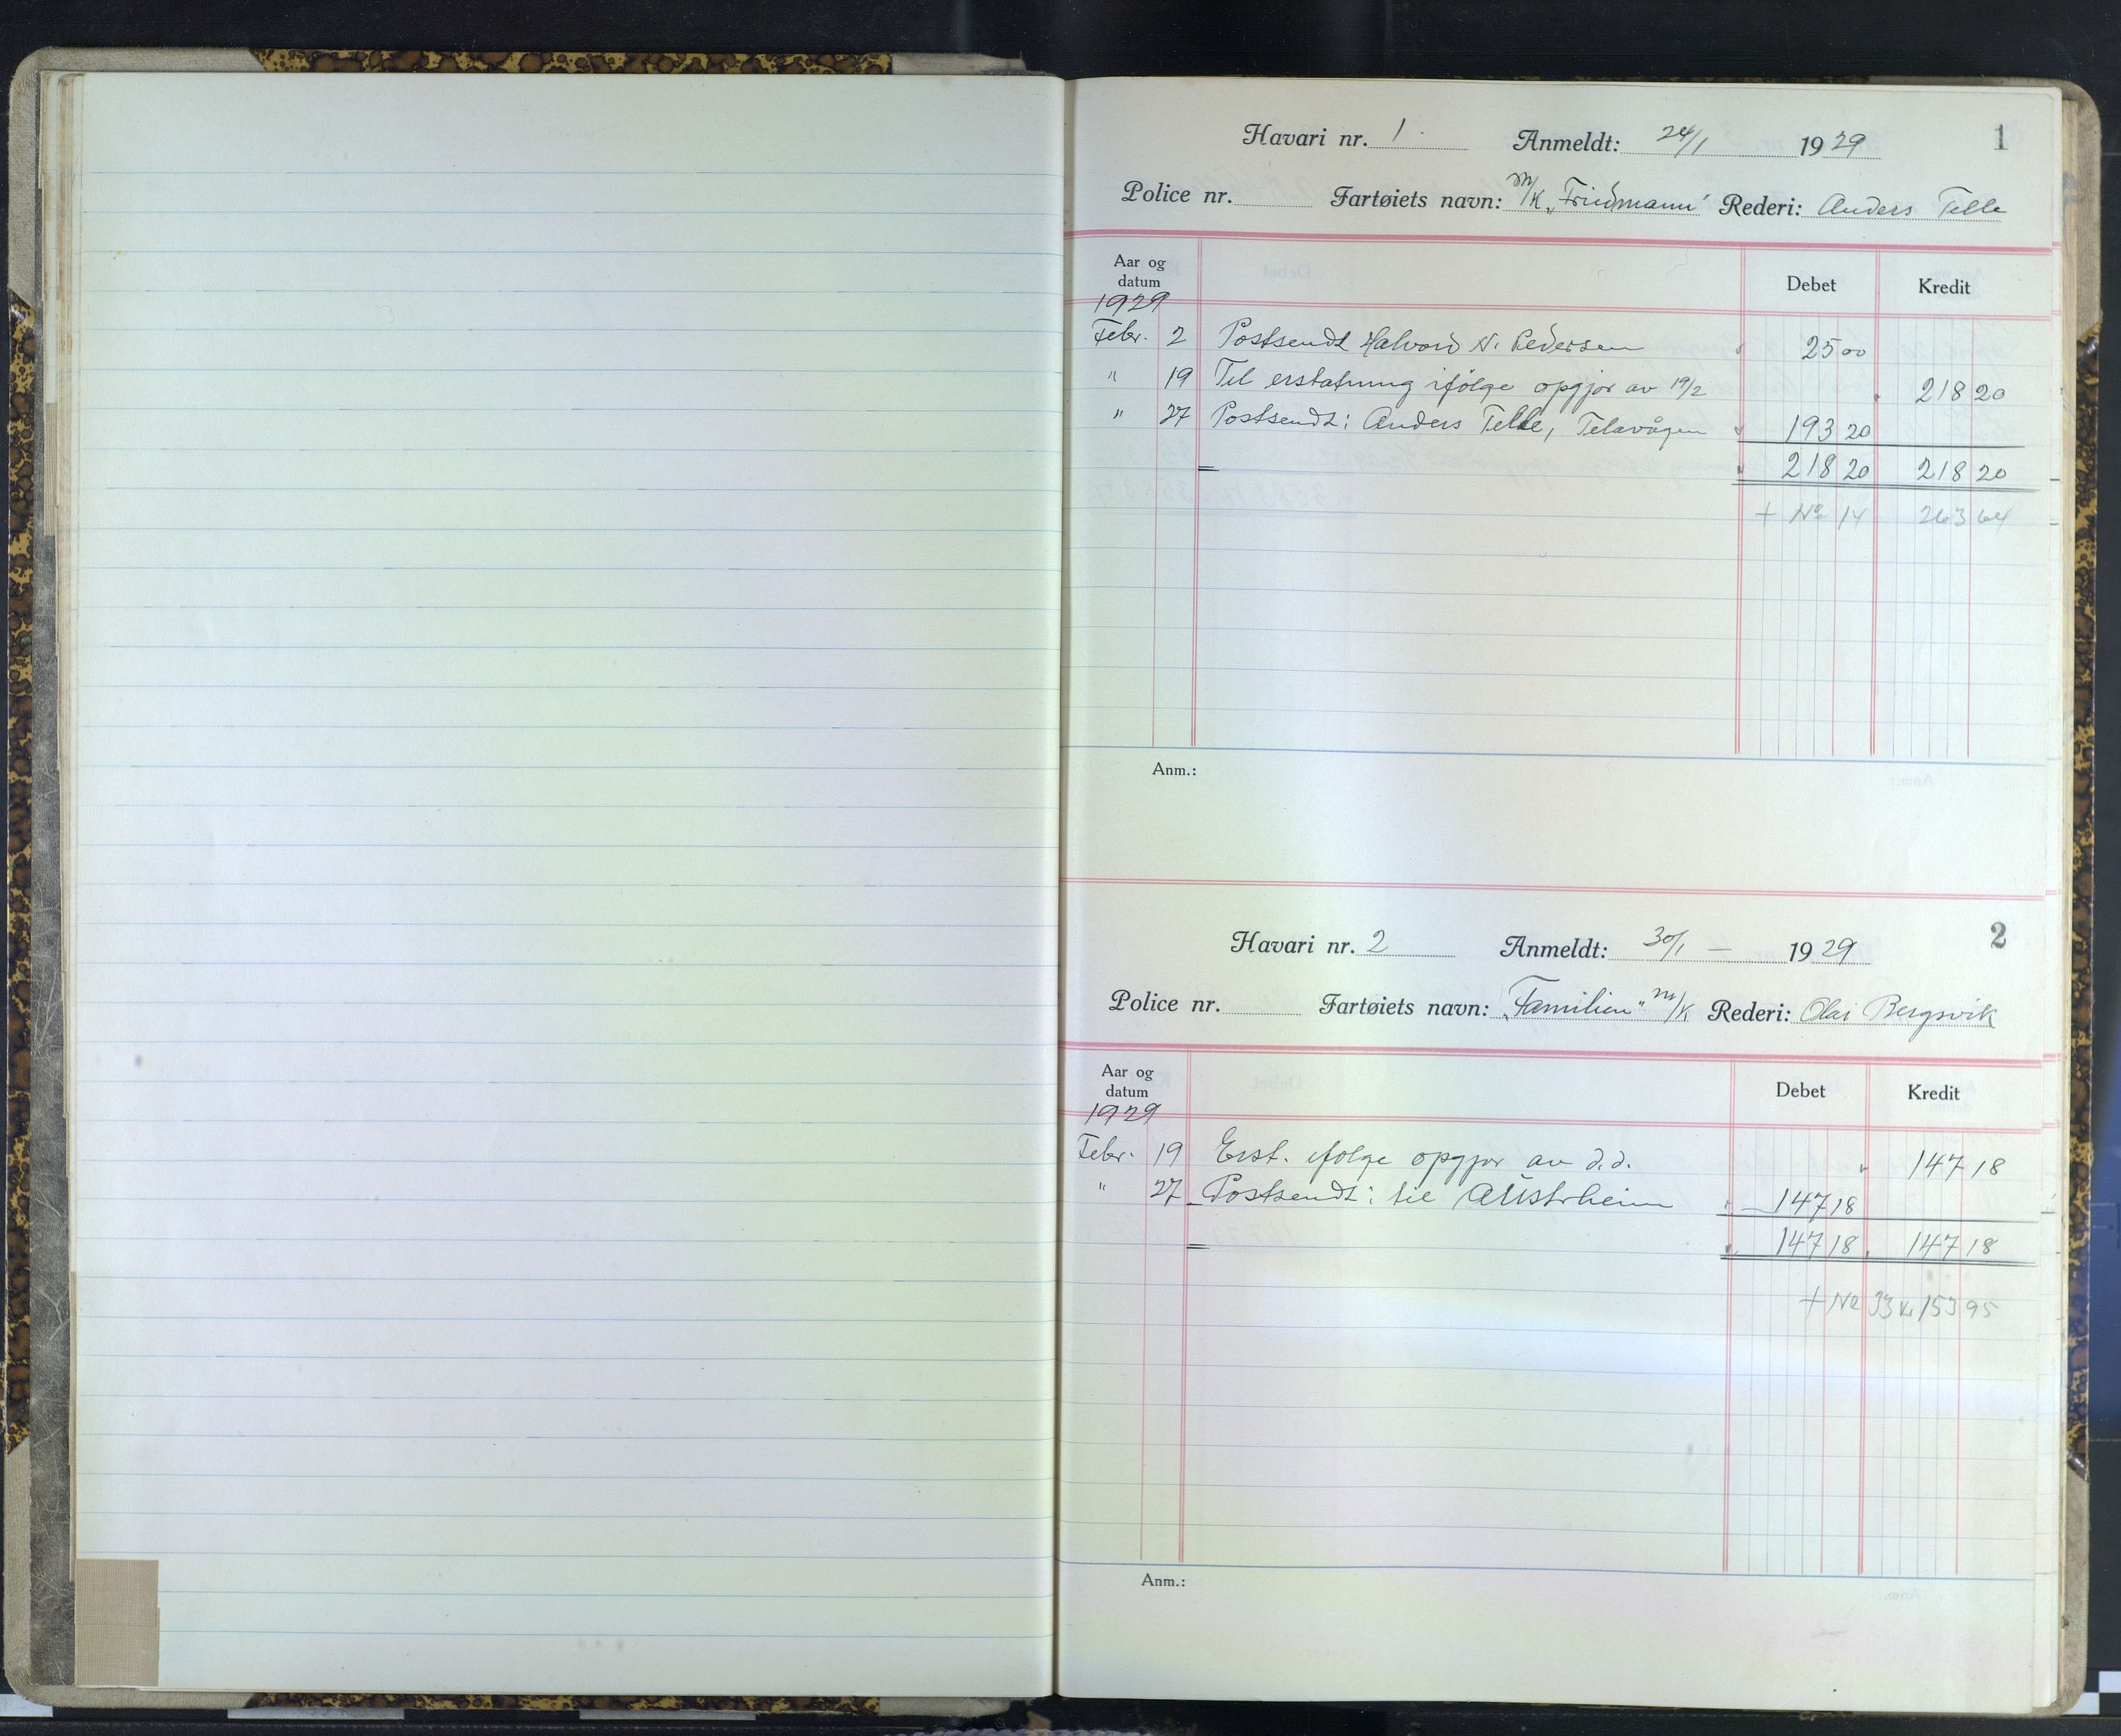 1
Havari nr. 1. Anmeldt: 24/1 1929
Police nr. Fartøiets navn: M/K „Friedmann" Rederi: Anders Telle
Aar og datum Debet Kredit
1929
Febr. 2 Postsendt Halvord N. Pedersen 25 00
" 19 Til erstatning ifölge opgjör av 19/2 218 20
" 27 Postsendt: Anders Telle, Telavågen 193 20
218 20 218 20
+ No 14 263 64
Anm.:
2
Havari nr. 2 Anmeldt: 30/1 — 1929
Police nr. Fartøiets navn: „Familien" M/K Rederi: Olai Bergsvik
Aar og datum Debet Kredit
1929
Febr. 19 Erst. ifölge opgjör av d.d. 147 18
" 27 Postsendt: til Austrheim 147 18
147 18 147 18
+ No 33 kr 153 95
Anm.: